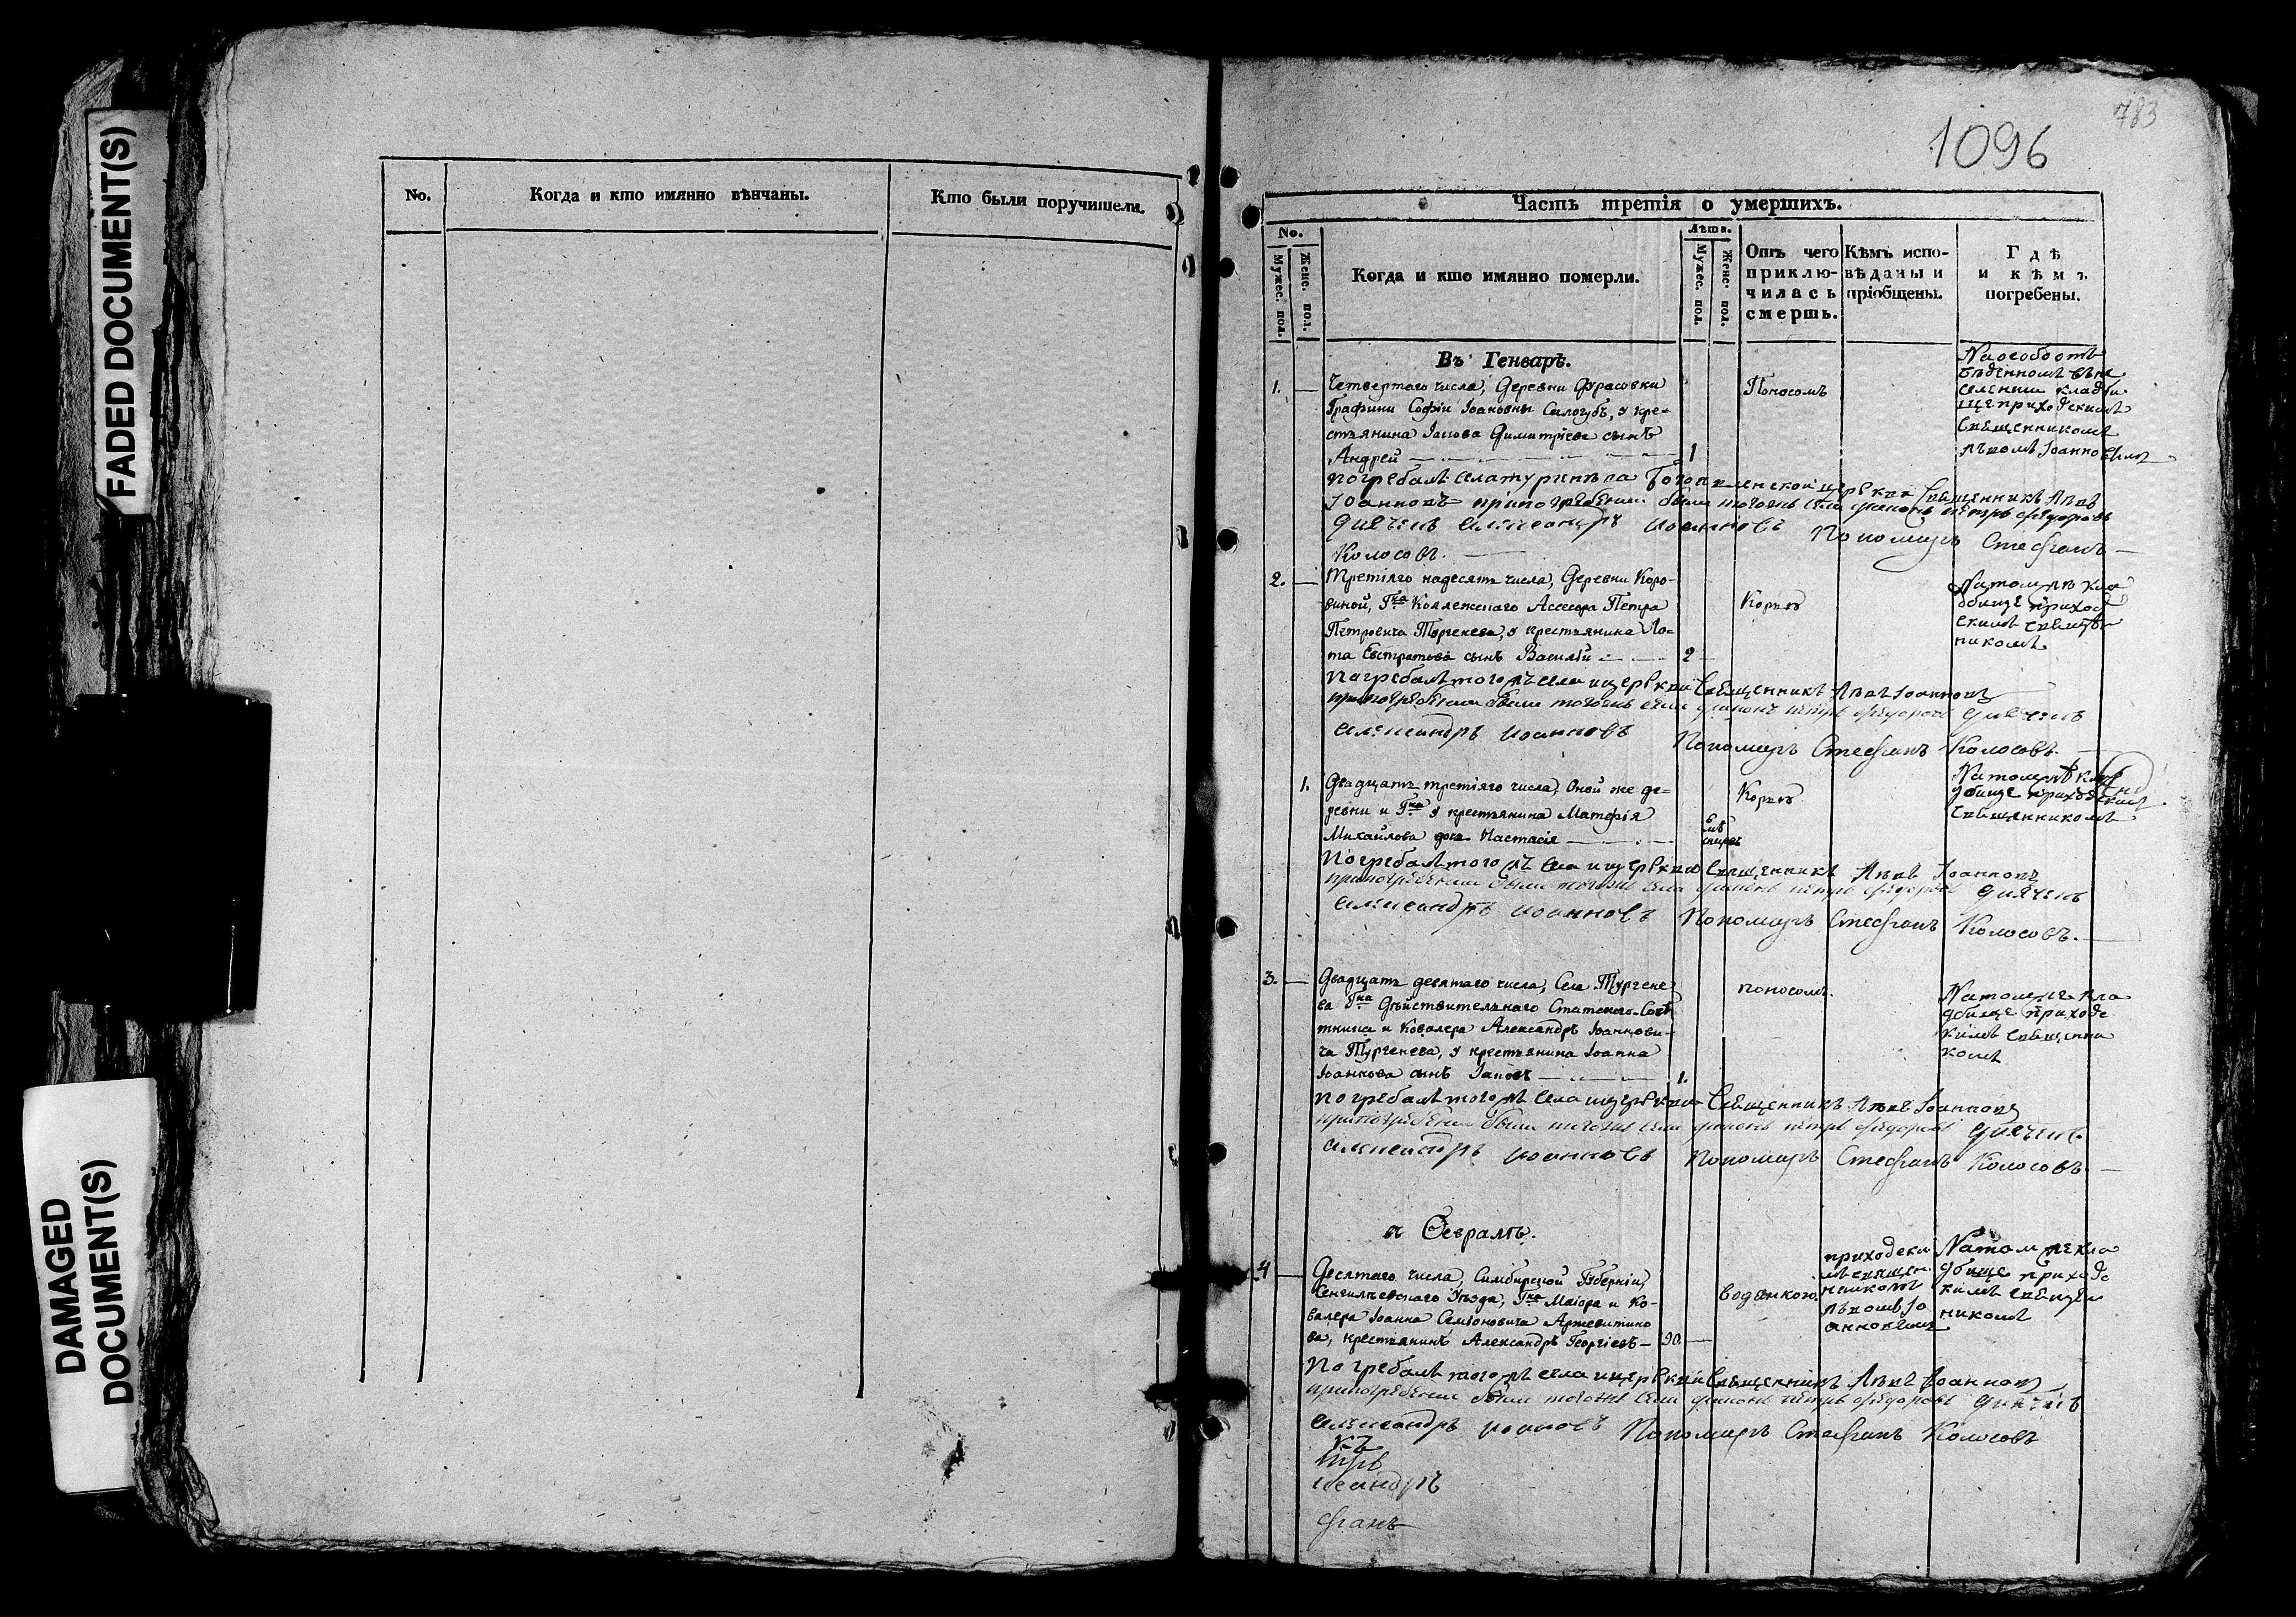 FADED DOCUMENT(S)
DAMAGED
DOCUMENT(S)
No.
Когда и кто имянно вѣнчаны.
Кто были поручители.
783
1096
Часть третія о умершихъ.
No.
Мужес. пол.
Женс. пол.
Когда и кто имянно померли.
Лѣта.
Мужес. пол.
Женс. пол.
Отъ чего
приклю-
чилась
смерть.
Кѣмъ испо-
вѣданы и
пріобщены.
Гдѣ
и кѣмъ
погребены.
Въ Генварѣ.
1. Четвертаго числа, Деревни Фурасовки
Графини Софіи Іоановны Сологубъ, у кре-
стьянина Іакова Димитріева сынъ
Андрей 1
Поносомъ
На особо отъ
селенія кладби
ще приходскимъ
Священникомъ
Львомъ Іоанновымъ
погребалъ села Богоявленской церкви Священникъ Левъ
Іоанновъ при погребеніи были тогожъ села діаконъ Петръ Ѳедоровъ
Дьячекъ Александръ Иоанновъ Пономарь Стефанъ
Колосовъ.
2. Третіяго надесять числа, Деревни Коро-
виной, Гна Коллежскаго Ассесора Петра
Петровича Тургенева, у крестьянина Ло-
та Евстратова сынъ Василій 2
Корью
На томъ же кла
дбище приход
скимъ священ
никомъ
Погребалъ того жъ села и церкви Священникъ Левъ Іоанновъ
при погребеніи были тогожъ села діаконъ Петръ Ѳедоровъ Дьячекъ
Александръ Иоанновъ Пономарь Стефанъ Колосовъ.
1. Двадцать третіяго числа, Оной же де-
ревни и Гна у крестьянина Матфія
Михайлова дочь Настасія
6
мѣ
сяцовъ
Корью
На томъ же кла
дбище приходскимъ
Священникомъ
Погребалъ того жъ села и церкви Священникъ Левъ Іоанновъ
при погребеніи были тогожъ села діаконъ Петръ Ѳедоровъ Дьячекъ
Александръ Иоанновъ Пономарь Стефанъ Колосовъ.
3. Двадцать девятаго числа, Села Тургене
ва Гна Дѣйствительнаго Статскаго Совѣ
тника и Ковалера Александръ Іоаннови-
ча Тургенева, у крестьянина Іоанна
Іоаннова сынъ Іаковъ 1.
поносомъ.
На томъ же кла
дбище приходс
кимъ священни
комъ
погребалъ того жъ села и церкви Священникъ Левъ Іоанновъ
при погребеніи были тогожъ села діаконъ Петръ Ѳедоровъ Дьячекъ
Александръ Иоанновъ Пономарь Стефанъ Колосовъ
в Февралѣ.
4 Десятаго числа, Симбирской Губерніи,
Сенгилѣевскаго Уѣзда, Гна Маіора и Ко-
валера Іоанна Семіоновича
ва, крестьянинъ Александръ Георгіевъ 90.
водянкою.
приходски
мъ священ
никомъ
Львомъ Іо
анновымъ
На томъ же кла
дбище приходс
кимъ священ
никомъ
Погребалъ того жъ села и церкви Священникъ Левъ Іоанновъ
при погребеніи были тогожъ села діаконъ Петръ Ѳедоровъ Дьячекъ
Александръ Иоановъ Пономарь Стефанъ Колосовъ
къ
тръ
ксандръ
фанъ